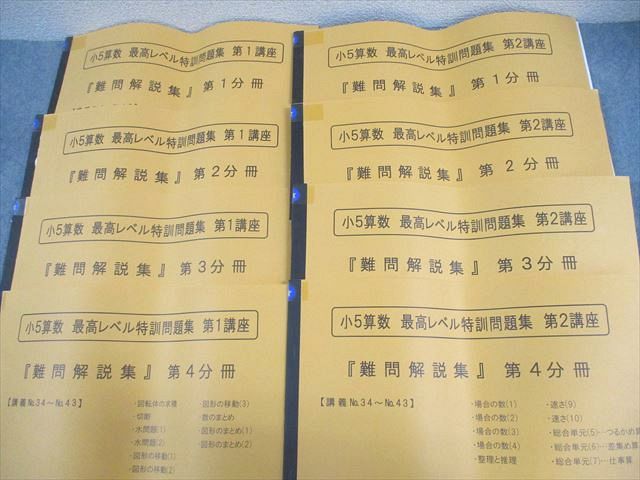 小5算数 最高レベル特訓問題集 第1講座
『難問解説集』 第1分冊
小5算数 最高レベル特訓問題集 第1講座
『難問解説集』 第2分冊
小5算数 最高レベル特訓問題集 第1講座
『難問解説集』 第3分冊
小5算数 最高レベル特訓問題集 第1講座
『難問解説集』 第4分冊
【講義No.34～No.43】
・回転体の求積
・切断
・水問題(1)
・水問題(2)
・図形の移動(1)
・図形の移動(2)
・図形の移動(3)
・数のまとめ
・図形のまとめ(1)
・図形のまとめ(2)
小5算数 最高レベル特訓問題集 第2講座
『難問解説集』 第1分冊
小5算数 最高レベル特訓問題集 第2講座
『難問解説集』 第2分冊
小5算数 最高レベル特訓問題集 第2講座
『難問解説集』 第3分冊
小5算数 最高レベル特訓問題集 第2講座
『難問解説集』 第4分冊
【講義No.34～No.43】
・場合の数(1)
・場合の数(2)
・場合の数(3)
・場合の数(4)
・整理と推理
・速さ(9)
・速さ(10)
・総合単元(5)…つるかめ算
・総合単元(6)…差集め算
・総合単元(7)…仕事算